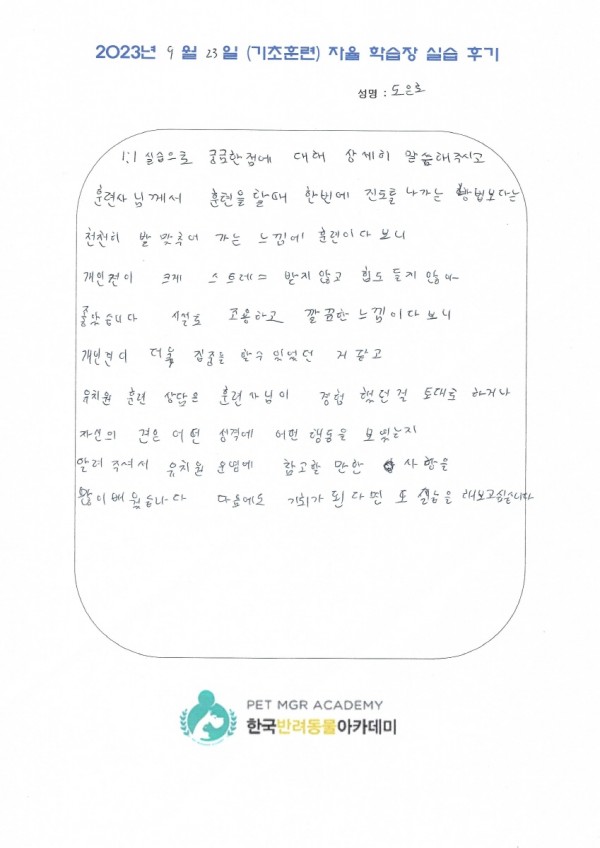 2023년 9월 23일 (기초훈련) 자율 학습장 실습 후기
성명 : 도은호
1:1 실습으로 궁금한점에 대해 상세히 말씀해주시고
훈련사님께서 훈련을 할때 한번에 진도를 나가는 방법보다는
천천히 발 맞추어 가는 느낌에 훈련이다 보니
개인견이 크게 스트레스 받지 않고 힘도 들지 않아
좋았습니다 시설로 조용하고 깔끔한 느낌이다 보니
개인견이 더욱 집중을 할수 있었던 거 같고
유치원 훈련 상담은 훈련사님이 경험 했던걸 토대로 하거나
자신의 견은 어떤 성격에 어떤 행동을 보였는지
알려 주셔서 유치원 운영에 참고할 만한 사항을
많이 배웠습니다 다음에도 기회가 된다면 또 실습을 해보고싶습니다
PET MGR ACADEMY
한국반려동물아카데미